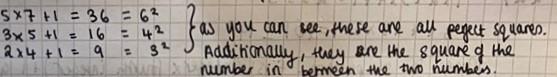 5×7 +1 = 36 = 6²
3×5 +1 = 16 = 4²
2×4 +1 = 9 = 3²
as you can see, these are all perfect squares.
Additionally, they are the square of the
number in between the two numbers.